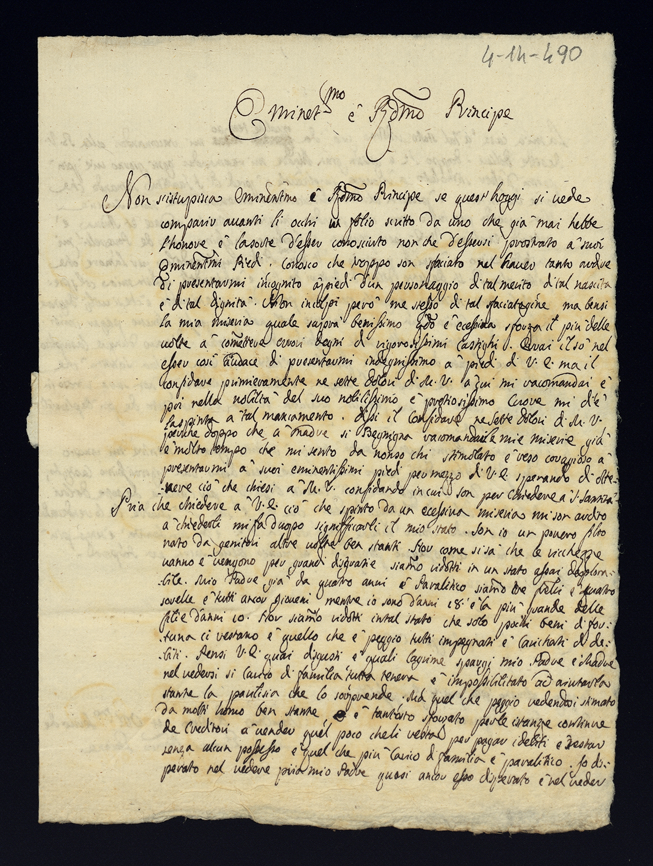 4-14-490
Eminet.mo è R.dmo Principe
Non si stupisca Eminentmo è Rdmo Principe se quest'hoggi si vede
comparir avanti li occhi un folio scritto da uno che già mai hebbe
l'honore è la sorte d'esser conosciuto non che d'essersi prostrato à suoi
Eminentmi Piedi. Conosco che troppo son sfaciato nel haver tanto ardire
di presentarmi incognito à piedi d'un personaggio di tal merito di tal nascita
è di tal dignità. Non incolpi però me stesso di tal sfaciatagine ma bensi
la mia miseria quale saprà benissimo è ecessiva sforza il più delle
volte à cometter errori degni di rigorosissimi castighi. Avrei il so nel
esser così audace di presentarmi indegnissimo à piedi di V. E. ma il
confidare primieramente ne sette dolori di M. V. à qui mi racomandai è
poi nella nobiltà del suo nobilissimo è Cuore mi d'è
la spinta à tal mancamento. il Confidare ne sette dolori di M. V.
doppo che à Madre si Begnigna racomandai la mie miserie già
è molto tempo che mi sento da non so chi stimolato è reso coraggioso à
presentarmi à suoi eminentissimi piedi per mezzo di V. E. sperando di otte-
nere ciò che chiesi à M. V. confidando in cui son per chiedere à
Pria che chiedere à V. E. ciò che spinto da un ecessiva miseria mi son ardito
à chiederli mi fa d'uopo significarli il mio stato. Son io un povero figlio
nato da genitori altre volte ben stanti. Hor come si sà che le richezze
vanno è vengono per grandi disgratie siamo ridotti in un stato assai deplora-
bile. Mio Padre già da quattro anni è Paralitico siamo tre fratelli è quattro
sorelle è tutti ancor gioveni mentre io sono d'anni 18 è la più grande delle
figlie d'anni 10. Hor siamo ridotti in tal stato che solo pochi beni di for-
tuna ci restano è quello che è peggio tutti impegnati è Carichati di de-
biti. Pensi V. E. quai disgusti è quali lagrime sparge mio Padre è Madre
nel vedersi si Carico di familia tutta tenera è impossibilitato ad aiutarla
stante la paralisia che lo sorprende. quel che peggio vedendosi stimato
da molti homo ben stante è tant'altro sforzato per le istanze continue
de Creditori à vender quel poco che li resta per pagar i debiti è restar
senza alcun possesso è quel che più Carico di familia è paralitico. Io di-
sperato nel vedere pria mio Padre quasi ancor esso disperato è nel veder